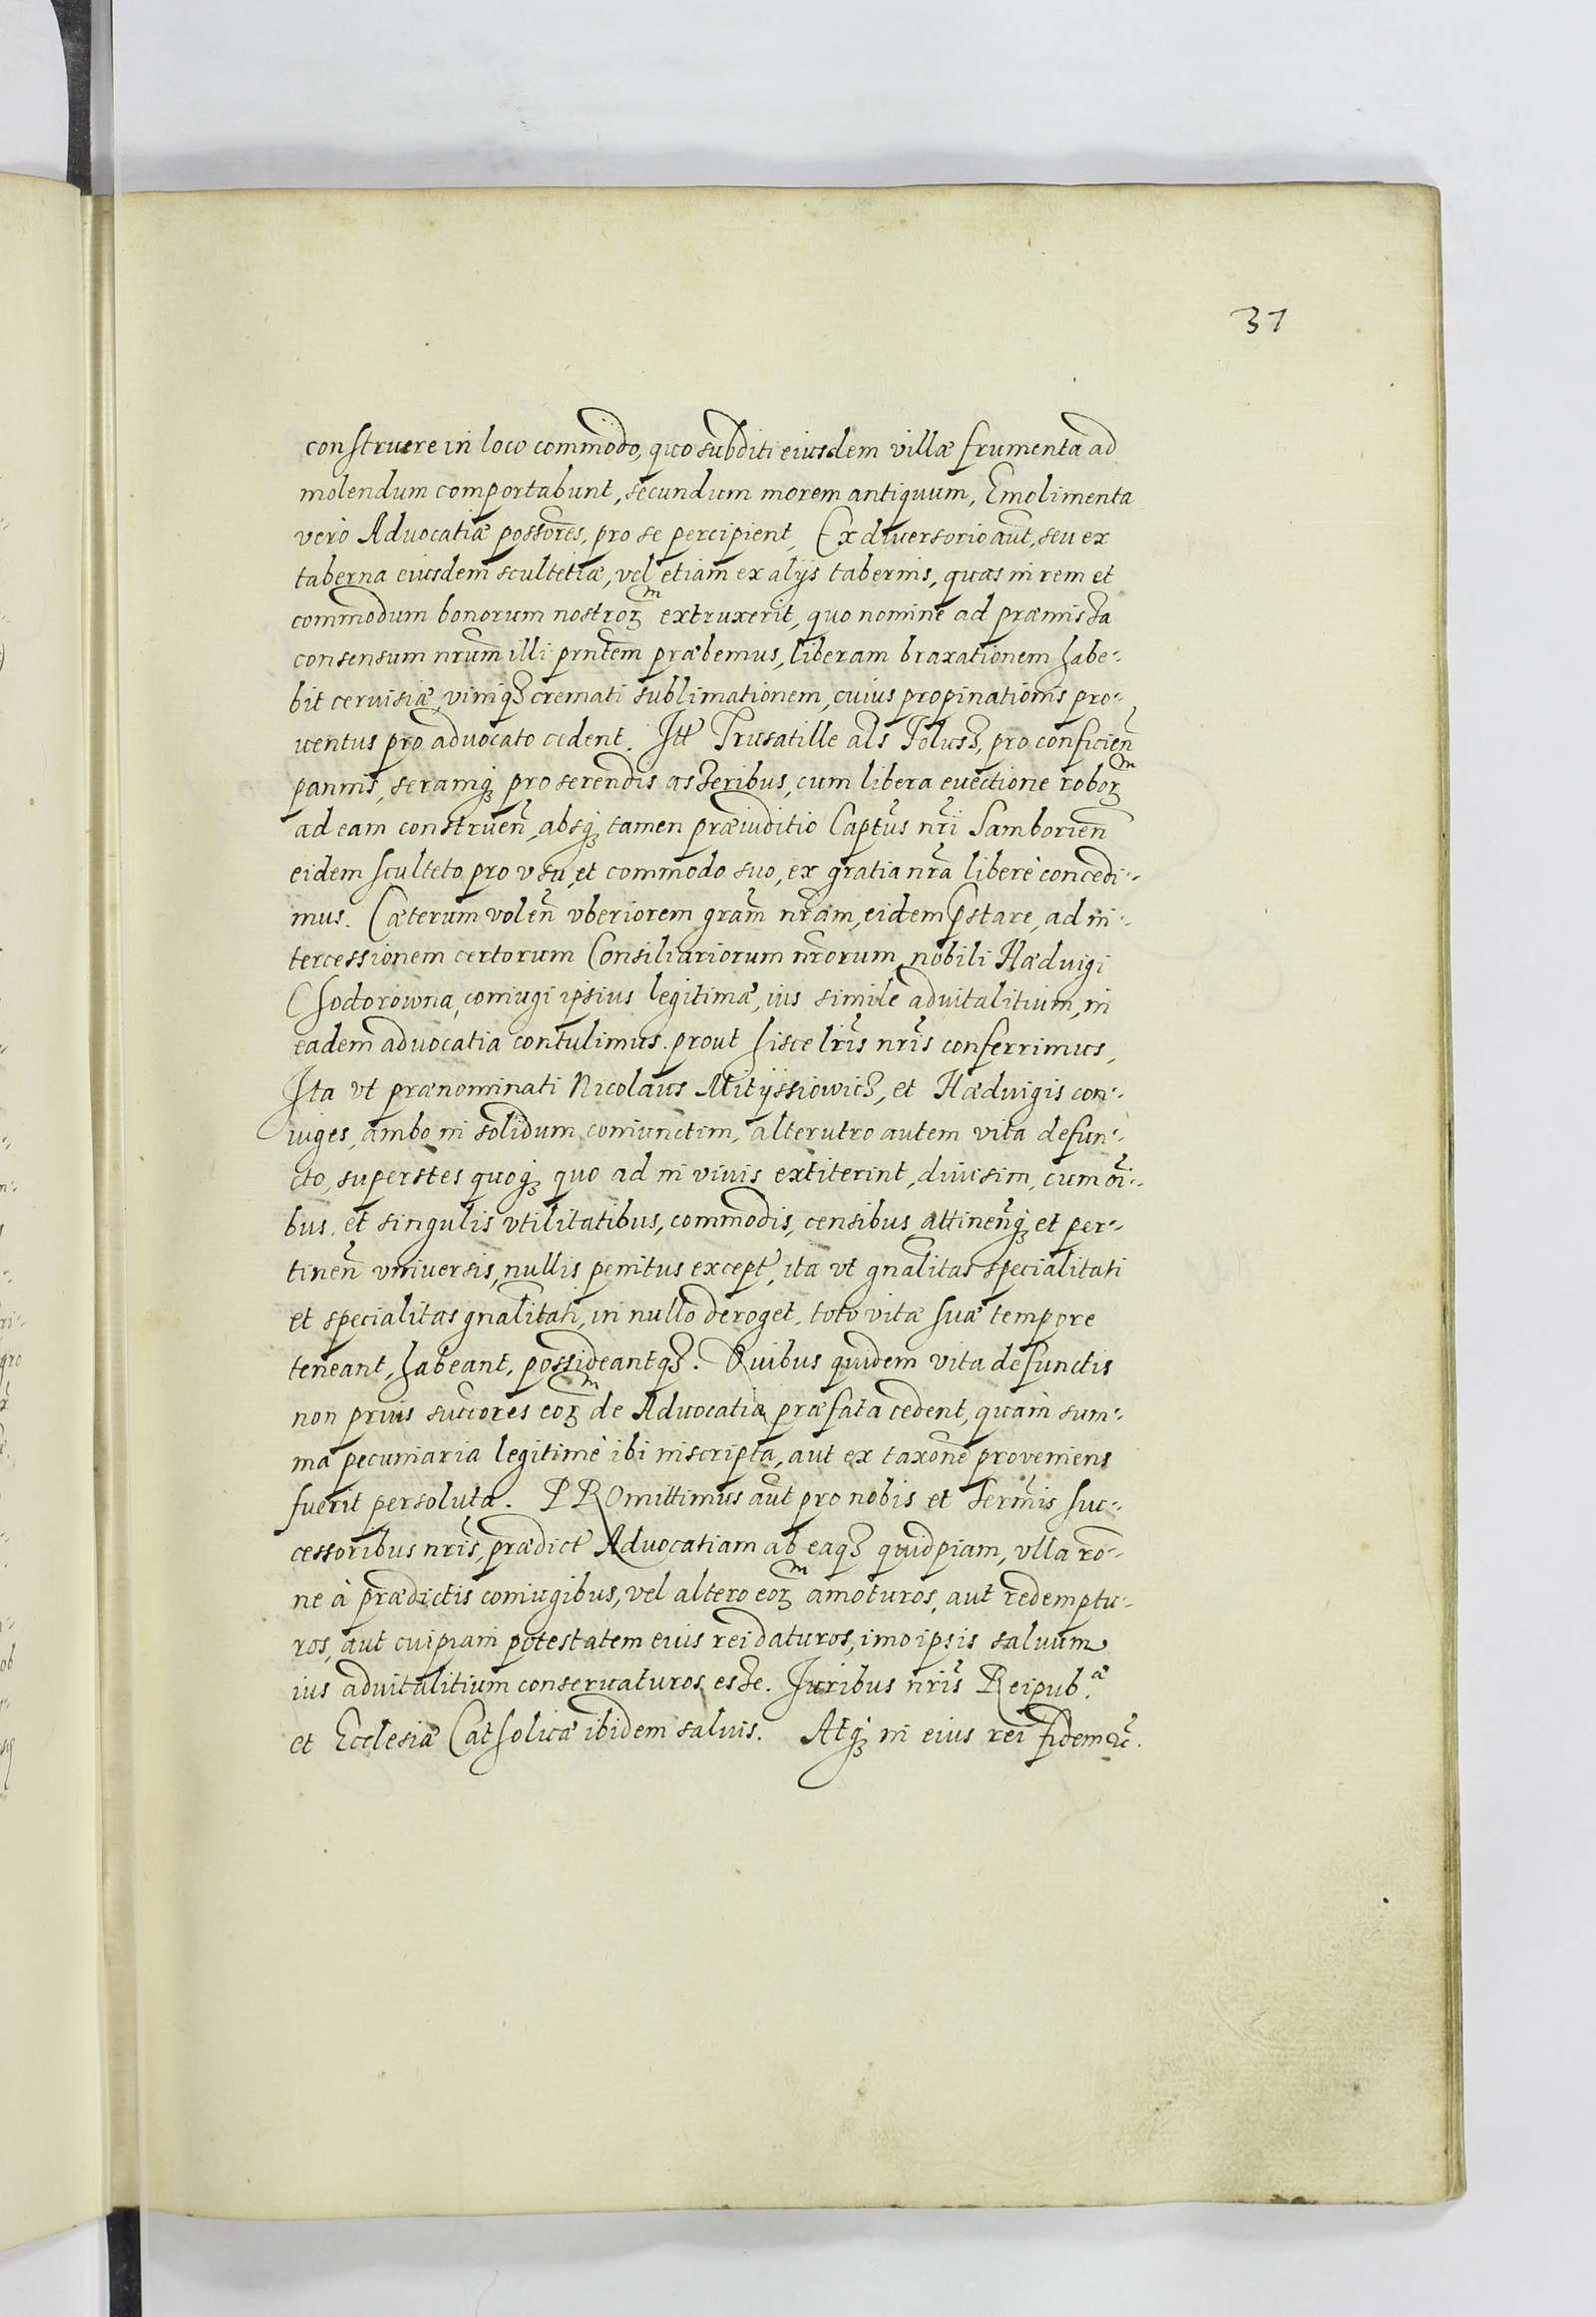 31
construere in loco commodo, quo subditi eiusdem villæ frumenta ad
molendum comportabunt, secundum morem antiquum, Emolimenta
verò Advocatiæ possōres, pro se percipient, Ex diversorio aūt, seu ex
taberna eiusdem scultetiæ, vel etiam ex alijs tabernis, quas in rem et
commodum bonorum nostroꝝͫ extruxerit, quo nomine ad præmissa
consensum nr̄um illi prn̄tem præbemus, liberam braxationem habe-
bit cervisiæ, viniqȝ cremati sublimationem, cuius propinationis pro-
ventus pro advocato cedent. Itt Trusatille als̄ Folusz, pro conficien̄
pannis, seramqȝ pro serendis asseribus, cum libera evectione roboꝝͫ
ad eam construen̄, absqȝ tamen præiuditio Captūs nr̄i Samborien̄
eidem sculteto pro usu, et commodo suo, ex gratia nr̄a liberè concedi-
mus. Cæterum volen̄ vberiorem grām nr̄am, eidem p̄stare, ad in-
tercessionem certorum Consiliariorum nr̄orum, nobili Hædvigi
Chodorowna, coniugi ipsius legitimæ, ius simile advitalitium, in
eadem advocatia contulimus. prout hisce lr̄is nr̄is conferrimus,
Ita vt prænominati Nicolaus Mityssiowicz, et Hædvigis con-
iuges, ambo in solidum coniunctim, alterutro autem vita defun-
cto, superstes quoqȝ quo ad in vivis extiterint, divisim, cum ōi-
bus. et singulis vtilitatibus, commodis, censibus attinen̄qȝ et per-
tinen̄ vniversis, nullis penitus except, ita vt gnālitas specialitati
et specialitas gnālitati, in nullo deroget, toto vitæ suæ tempore
teneant, habeant, possideantqȝ. Quibus quidem vita defunctis
non prius succores eoꝝͫ de Advocatia præfata cedent, quàm sum-
ma pecuniaria legitimè ibi inscripta, aut ex taxōne proveniens
fuerit persoluta. PROmittimus aūt pro nobis et Serm̄is suc-
cessoribus nr̄is, prædict Advocatiam ab eaqȝ quidpiam, vlla rō-
ne à prædictis coniugibus, vel altero eoꝝͫ amoturos, aut redemptu-
ros, aut cuipiam potestatem eius rei daturos, imo ipsis salvum
ius advitalitium conservaturos esse. Iuribus nr̄is Reipub.æ
et Ecclesiæ Catholicæ ibidem salvis. Atqȝ in eius rei fidem &c̄.